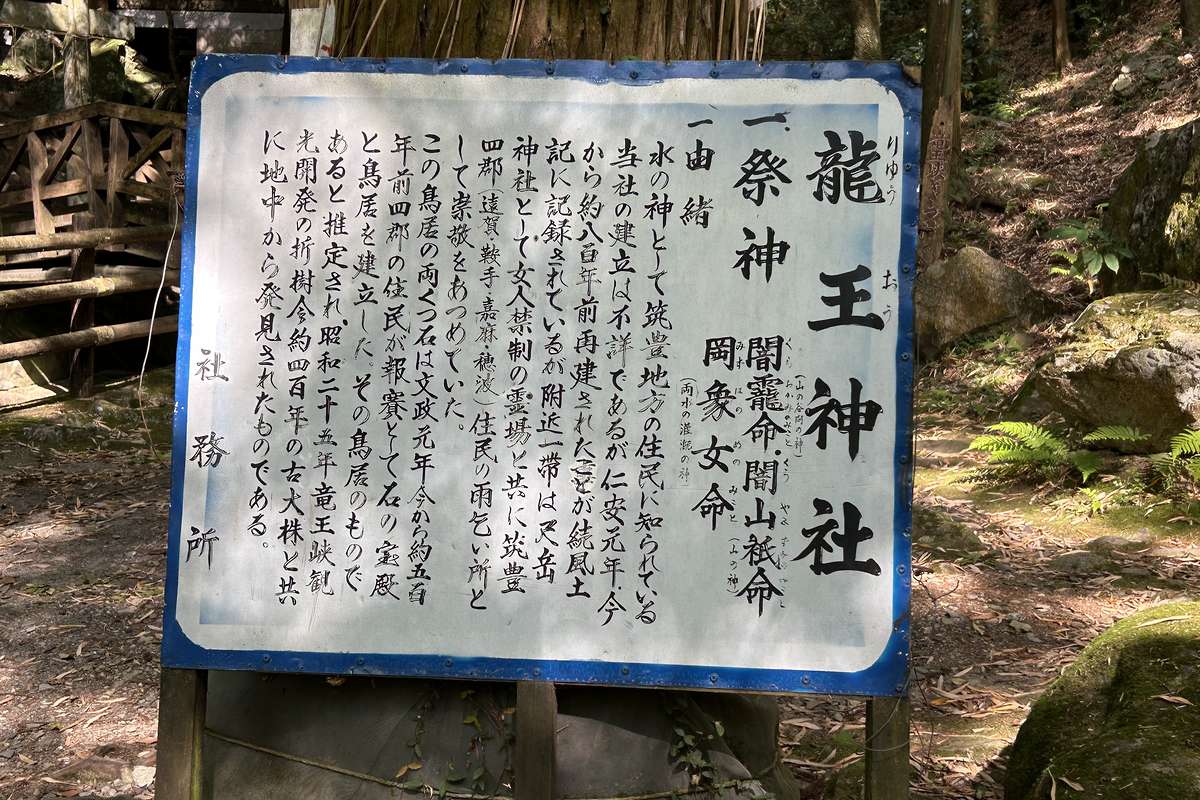 龍王神社
りゅう おう
一、祭神
闇龗命・闇山祇命
くら おかみのみこと くら やま
(山の谷間の神)
(山の神)
岡象女命
みず はの めの みこと
(雨水の灌漑の神)
一 由緒
水の神として筑豊地方の住民に知られている
当社の建立は不詳であるが仁安元年・今
から約八百年前再建されたことが続風土
記に記録されているが附近一帯は尺岳
神社として女人禁制の霊場と共に筑豊
四郡(遠賀・鞍手・嘉麻・穂波)住民の雨乞い所と
して崇敬をあつめていた。
この鳥居の両くつ石は文政元年今から約五百
年前四郡の住民が報賽として石の宝殿
と鳥居を建立した。その鳥居のもので
あると推定され、昭和二十五年竜王峡観
光開発の折樹令約四百年の古大株と共
に地中から発見されたものである。
社務所